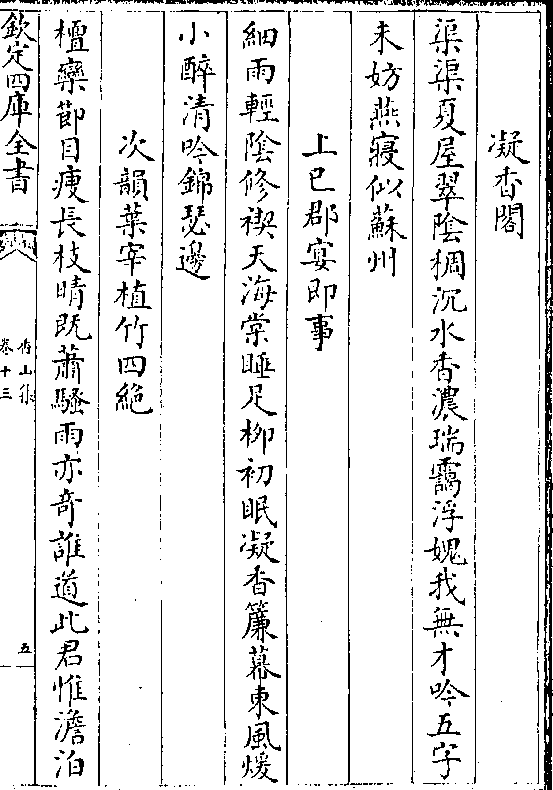 凝香閣
渠渠夏屋翠陰稠沉水香濃瑞靄浮媿我無才吟五字
未妨燕寢似蘇州
上巳郡宴即事
細雨輕陰修禊天海棠睡足柳初眠凝香簾幕東風煖
小醉清吟錦瑟邊
次韻葉宰植竹四絶
檀欒節目瘦長枝晴既蕭騷雨亦奇誰道此君惟澹泊
欽定四庫全書
卷十三
五